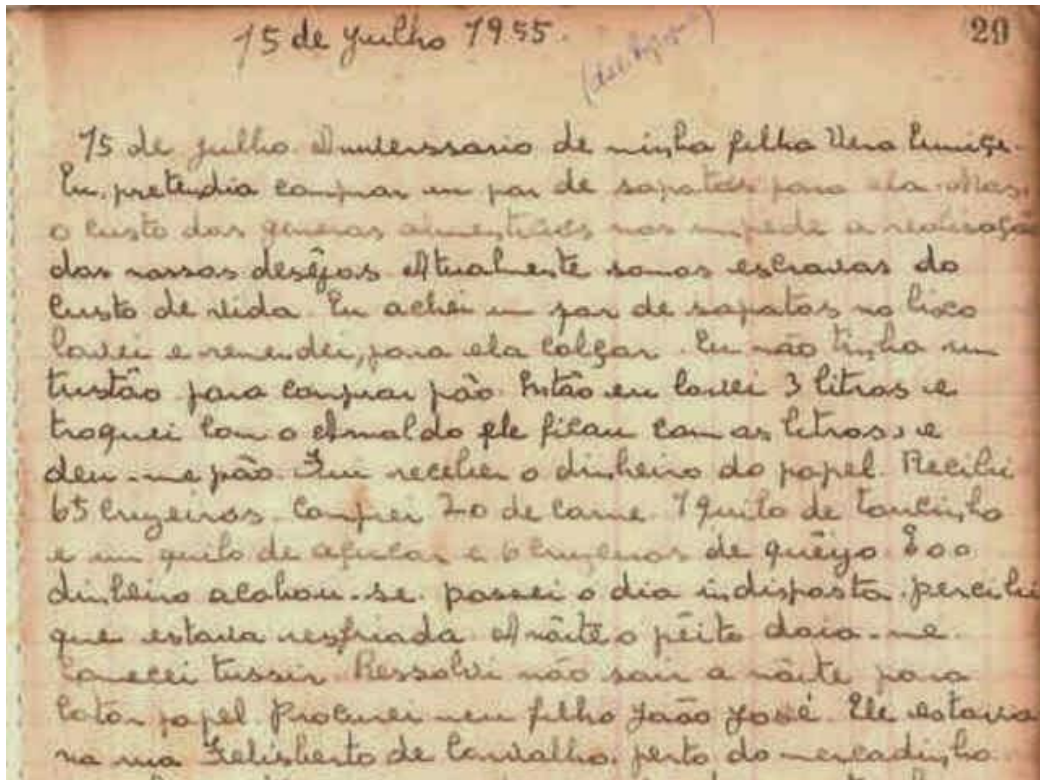 15 de Julho 1955.
20
15 de julho Aniverssario de minha filha Vera Euniçe.
Eu pretendia comprar um par de sapatos para ela. Mas,
o custo dos generos alimenticios nos impede a realisação
dos nossos desêjos Atualmente somos escravos do
custo de vida. Eu achei um par de sapatos no lixo
lavei e remendei, para ela calçar. Eu não tinha um
tustão para comprar pão. Então eu lavei 3 litros e
troquei com o Arnaldo ele ficou com os litros, e
deu-me pão. Fui receber o dinheiro do papel. Recibi
65 cruzeiros. Comprei 20 de carne. 1 quilo de toucinho
e um quilo de açucar e 6 cruzeiros de quêijo. E o o
dinheiro acabou-se. passei o dia indisposta. percibi
que estava resfriada. A nôite o pêito doia-me.
Comecei tussir. Ressolvi não sair a nôite para
catar papel. Procurei meu filho João José. Ele estava
na rua Felisberto de Carvalho, perto do mercadinho.